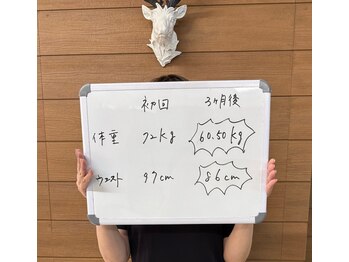 初回 3ヶ月後
体重 72kg 60.50kg
ウエスト 97cm 86cm